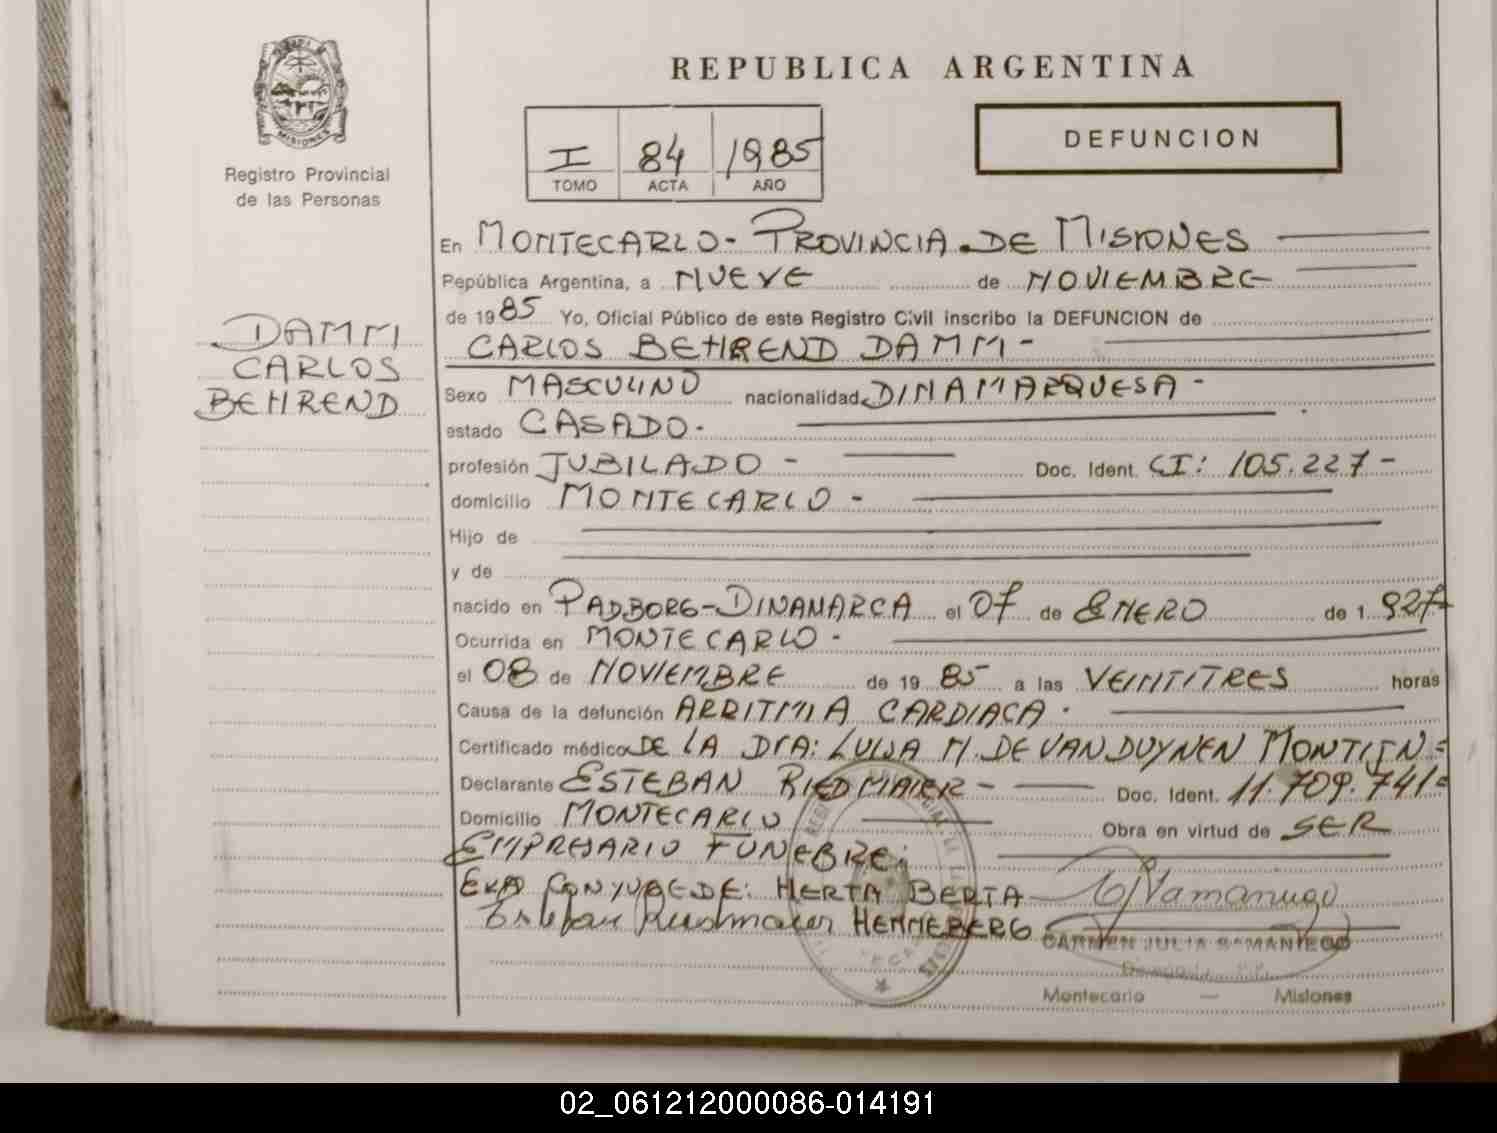 REPUBLICA ARGENTINA
MISIONES
Registro Provincial
de las Personas
I 84 1985
TOMO ACTA AÑO
DEFUNCION
DAMM
CARLOS
BEHREND
En MONTECARLO - PROVINCIA DE MISIONES
República Argentina, a NUEVE de NOVIEMBRE
de 1985 Yo, Oficial Público de este Registro Civil inscribo la DEFUNCION de
CARLOS BEHREND DAMM -
Sexo MASCULINO nacionalidad DINAMARQUESA -
estado CASADO -
profesión JUBILADO - Doc. Ident. CI: 105.227 -
domicilio MONTECARLO -
Hijo de
y de
nacido en PADBORG - DINAMARCA el 07 de ENERO de 1.927
Ocurrida en MONTECARLO -
el 08 de NOVIEMBRE de 1985 a las VEINTITRES horas
Causa de la defunción ARRITMIA CARDIACA .
Certificado médico DE LA DRA: LUISA M. DE VAN DUYNEN MONTIJN =
Declarante ESTEBAN RIEDMAIER - Doc. Ident. 11.709.741 =
Domicilio MONTECARLO Obra en virtud de SER
EMPRESARIO FUNEBRE;
ERA CONYUGE DE: HERTA BERTA
Esteban Riedmaier HENNEBERG
CARMEN JULIA SAMANIEGO
Montecarlo — Misiones
02_061212000086-014191